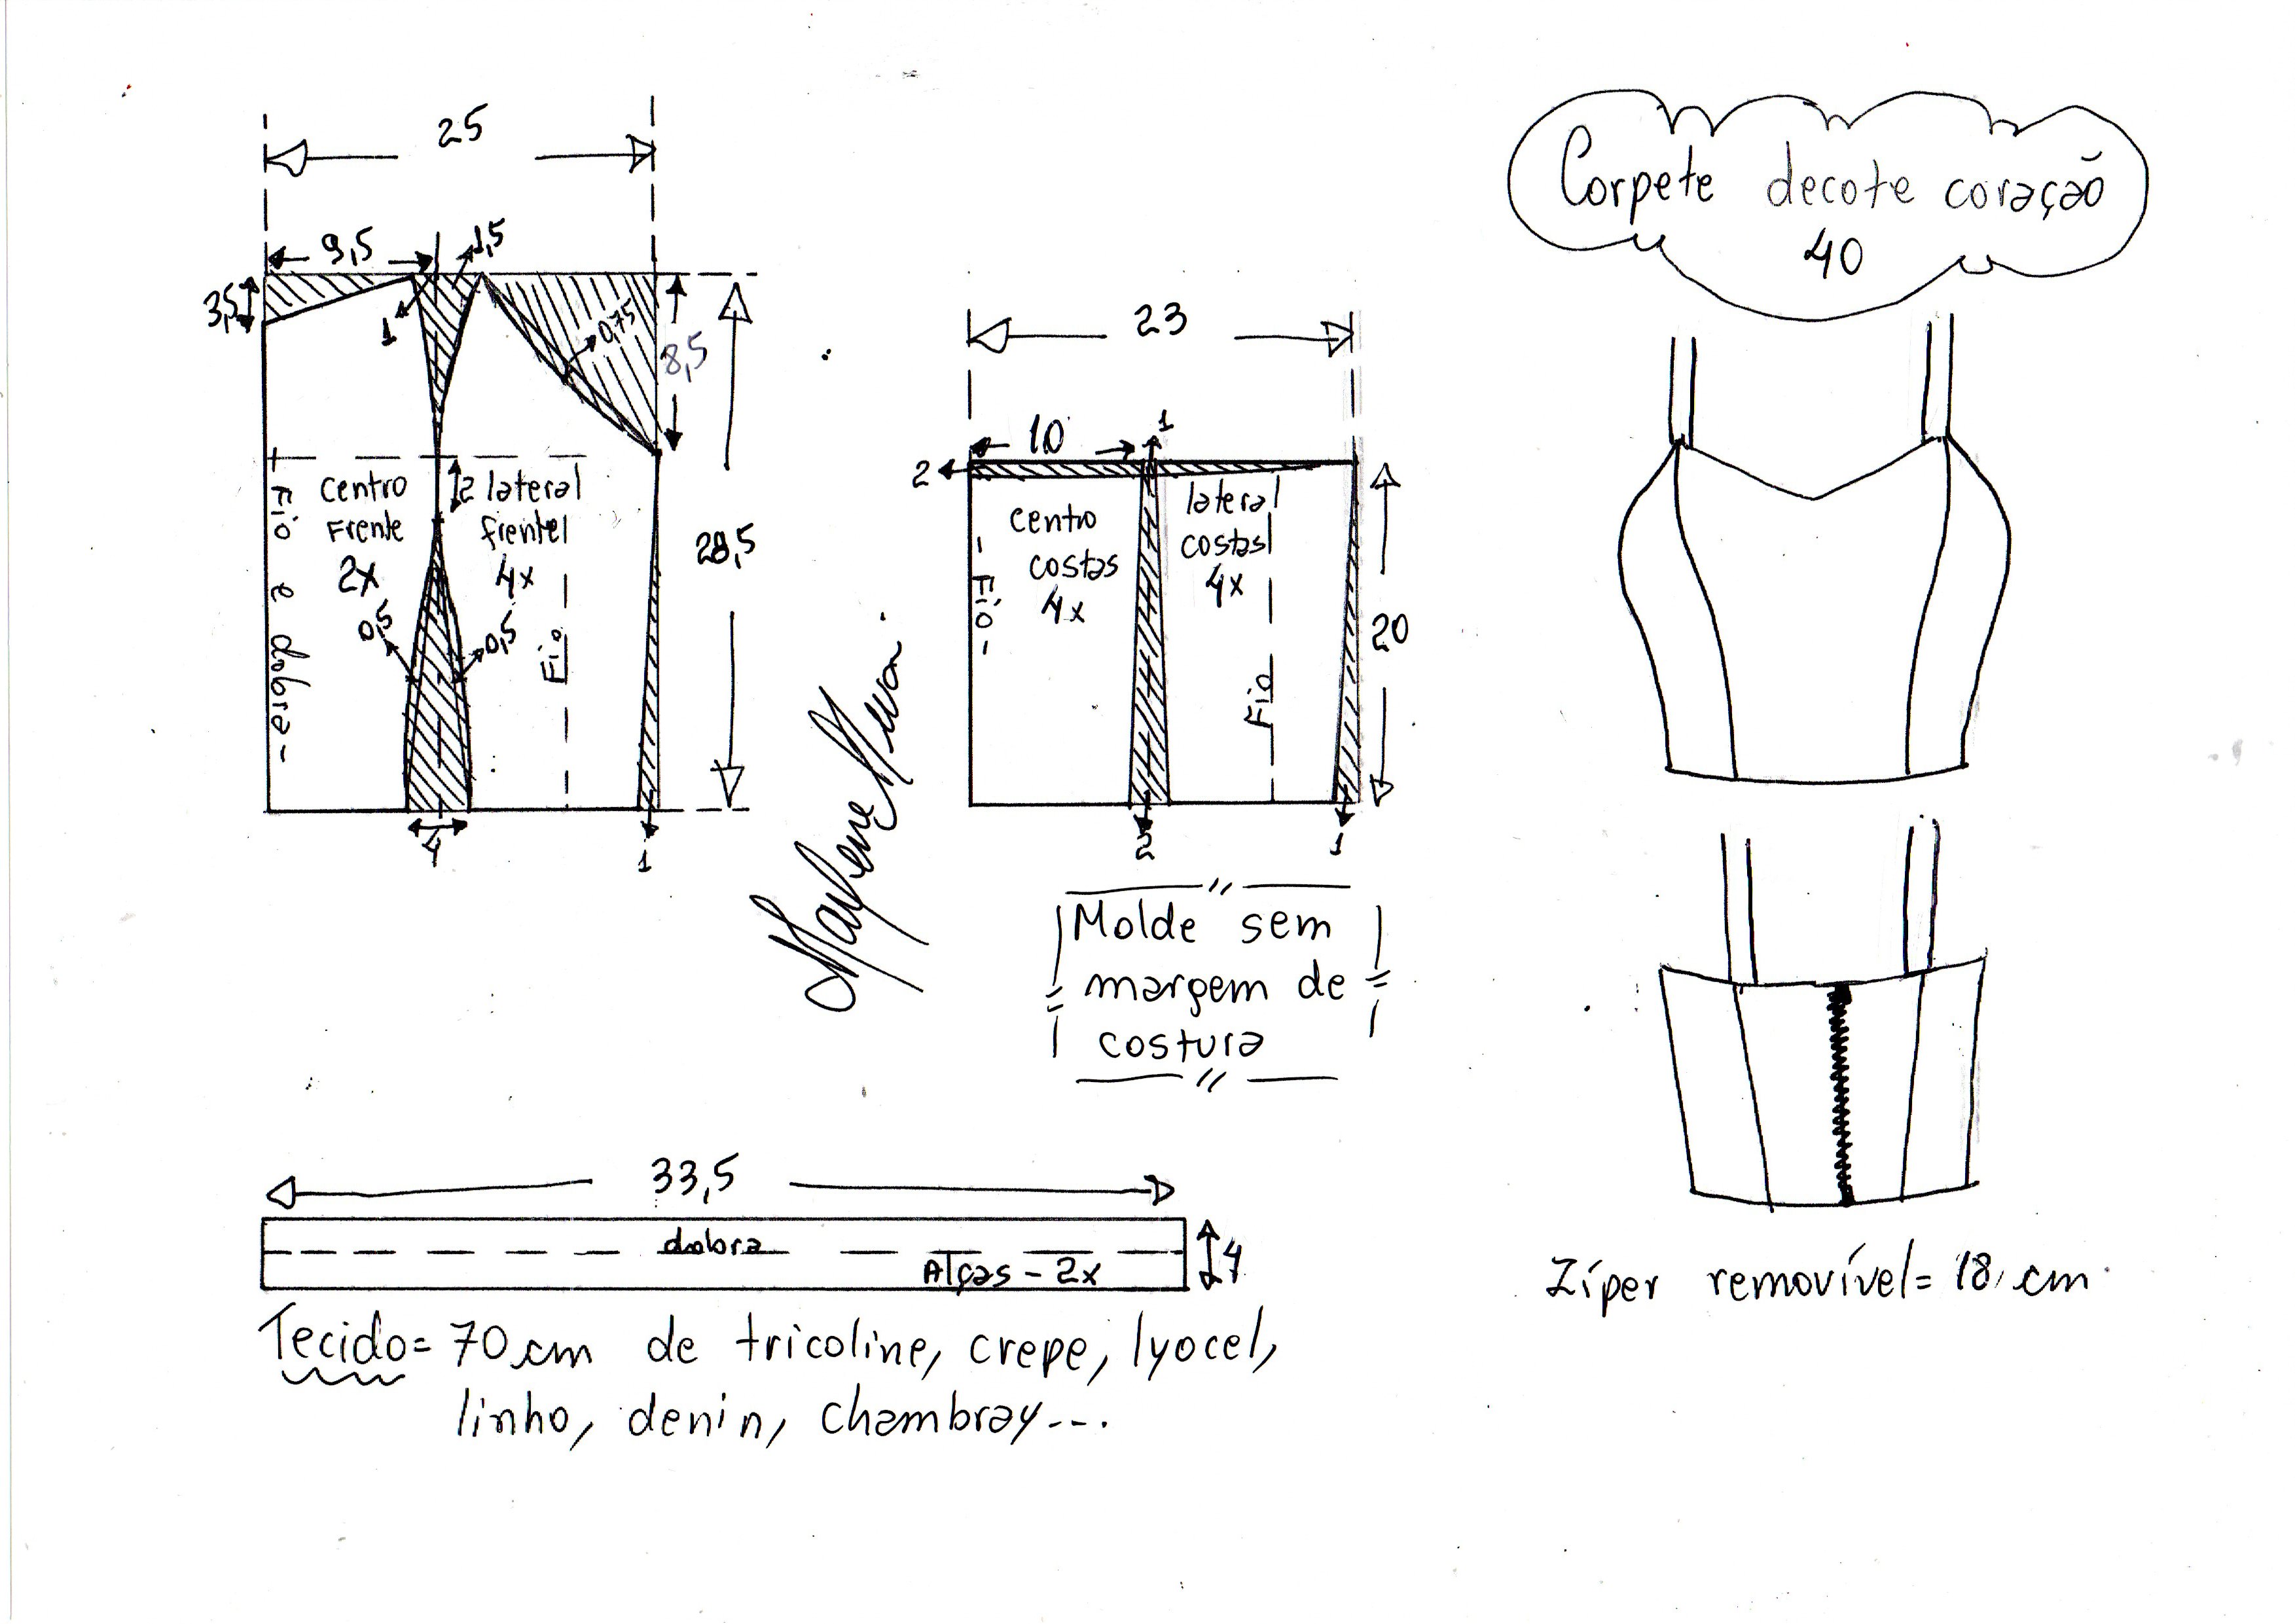 Corpete decote coração
40
25
9,5
1,5
3,5
1
0,75
8,5
28,5
2
centro
Frente
2x
lateral
frente
4x
Fio e dobra
Fio
0,5
0,5
4
1
23
10
1
2
centro
costas
4x
lateral
costas
4x
Fio
Fio
20
2
1
Molde sem
margem de
costura
33,5
dobra
Alças - 2x
4
Tecido= 70 cm de tricoline, crepe, lyocel,
linho, denin, chambray...
Zíper removível= 18 cm